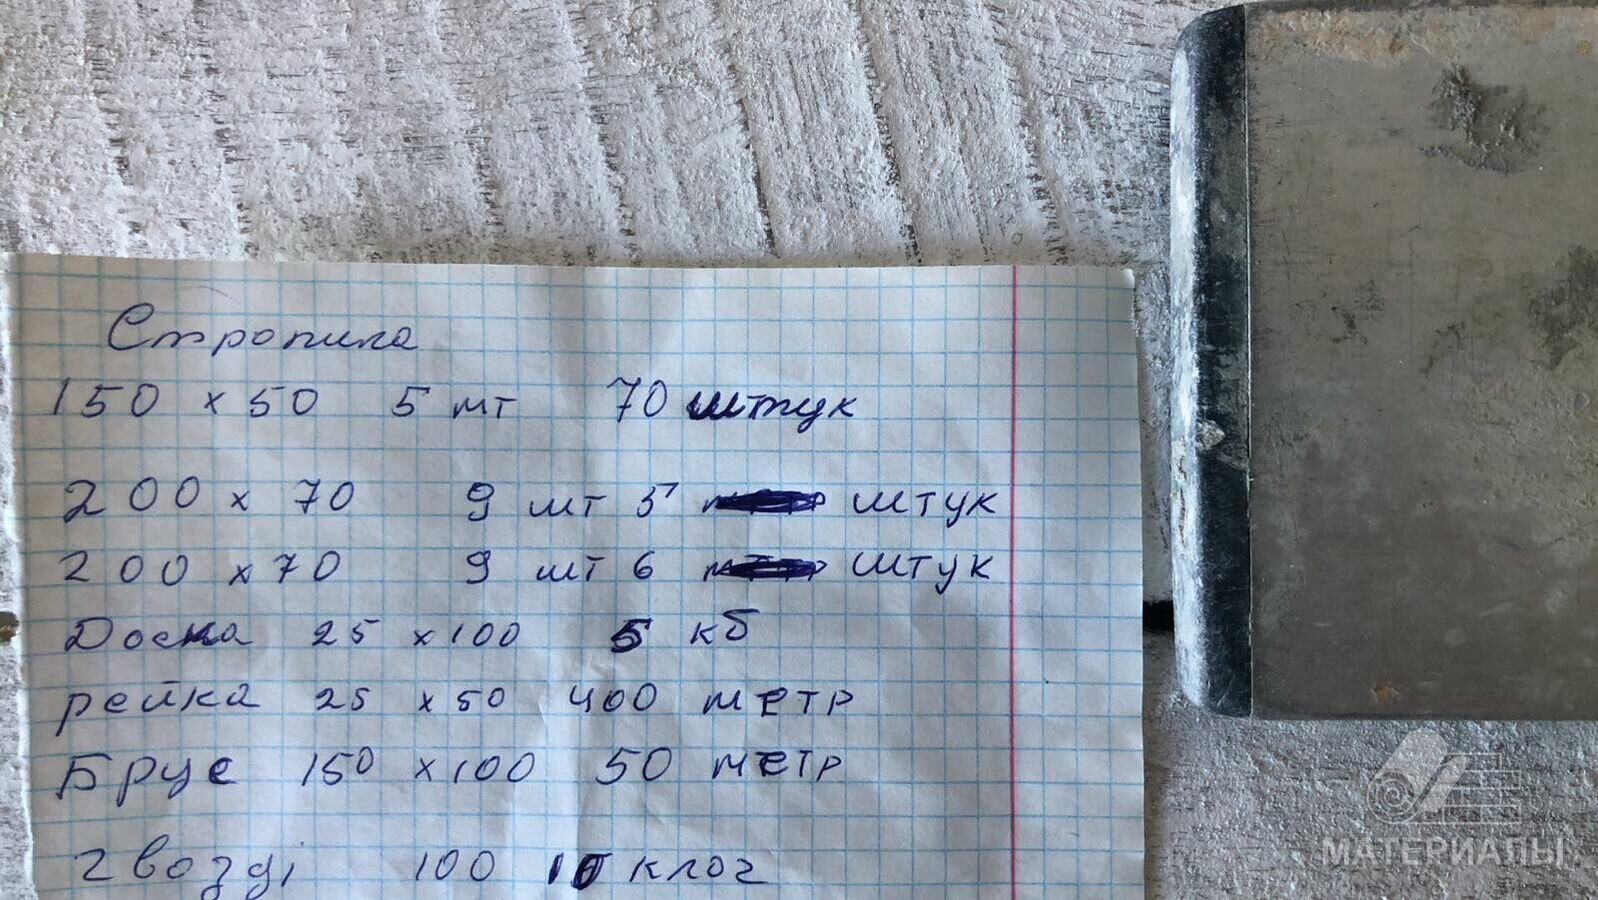 Стропила
150 x 50 5 мт 70 штук
200 x 70 9 мт 5 штук
200 x 70 9 мт 6 штук
Доска 25 x 100 5 кб
рейка 25 x 50 400 метр
Брус 150 x 100 50 метр
гвозді 100
МАТЕРИАЛЫ